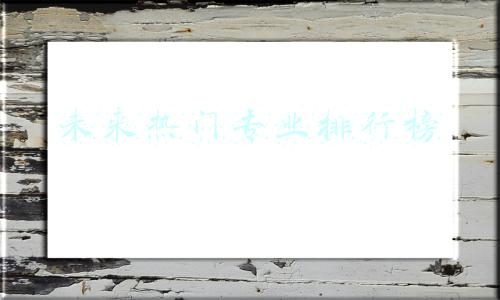 未来热门专业排行榜